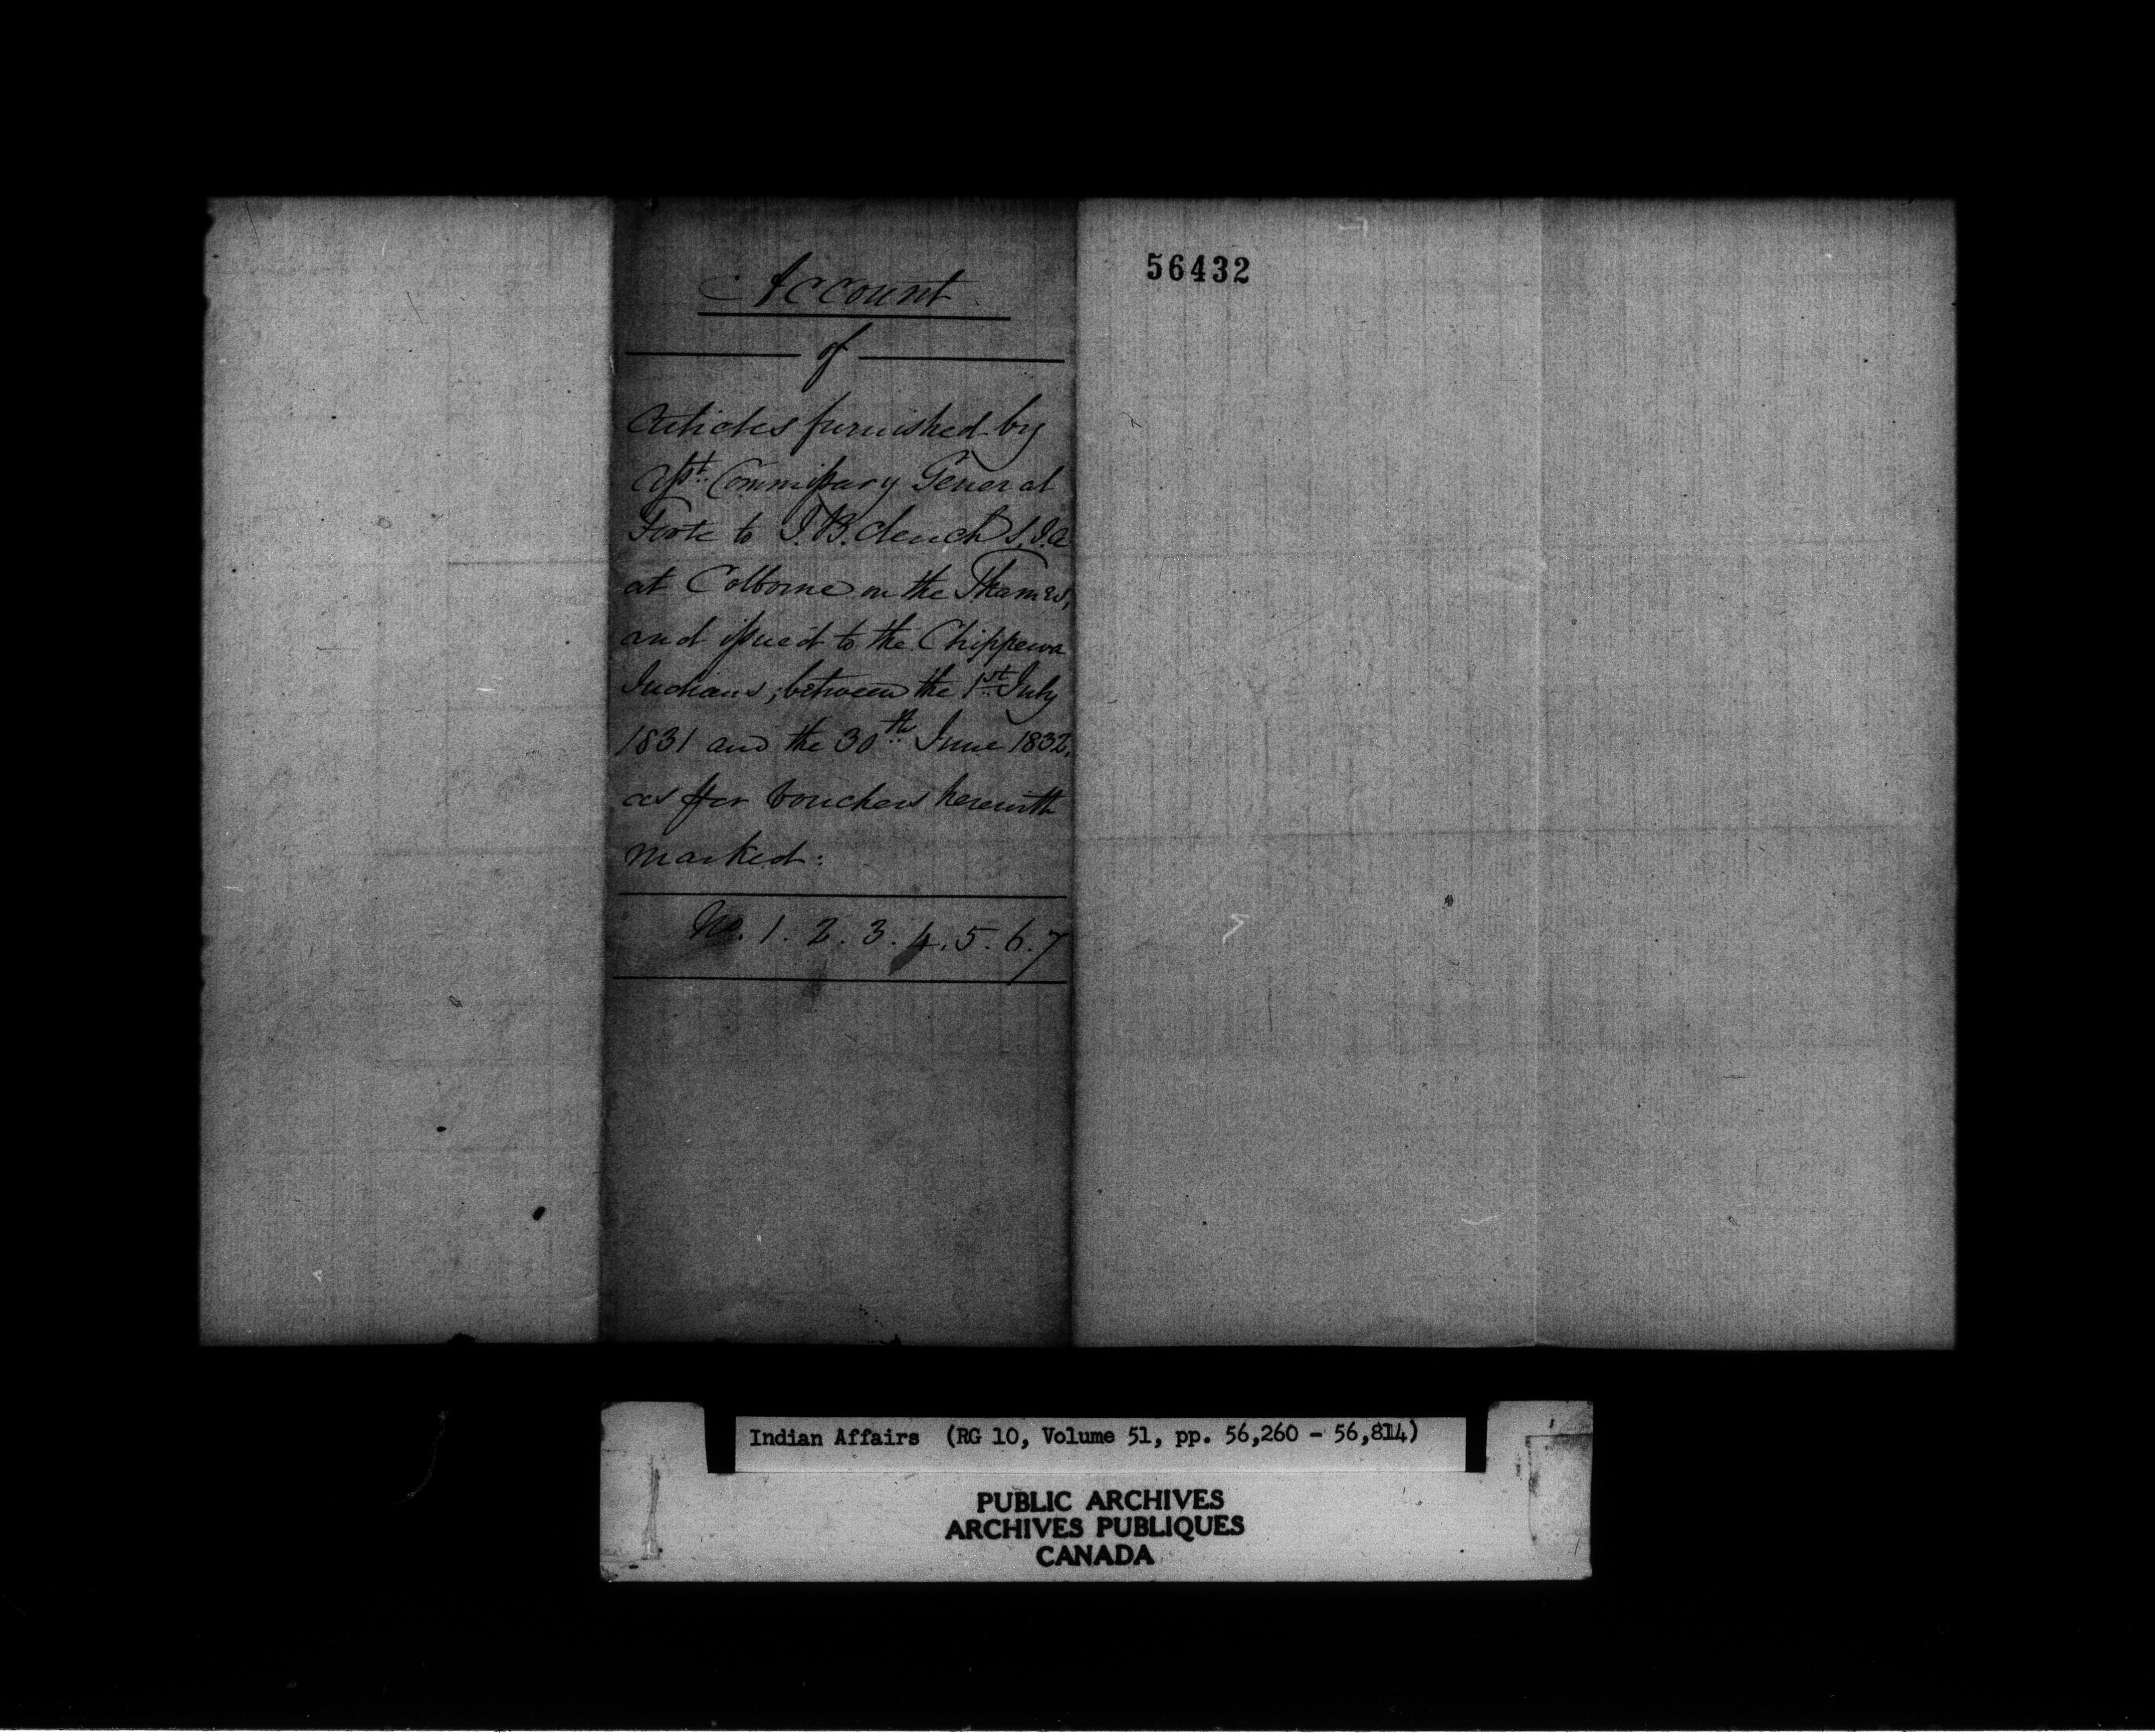 Account
of
Articles furnished by
Asst. Commissary General
Foote to J. B. Clench S.I.A
at Colborne on the Thames,
and issued to the Chippewa
Indians, between the 1st July
1831 and the 30th June 1832,
as per Vouchers herewith
marked:
No. 1. 2. 3. 4. 5. 6. 7
56432
Indian Affairs (RG 10, Volume 51, pp. 56,260 - 56,814)
PUBLIC ARCHIVES
ARCHIVES PUBLIQUES
CANADA